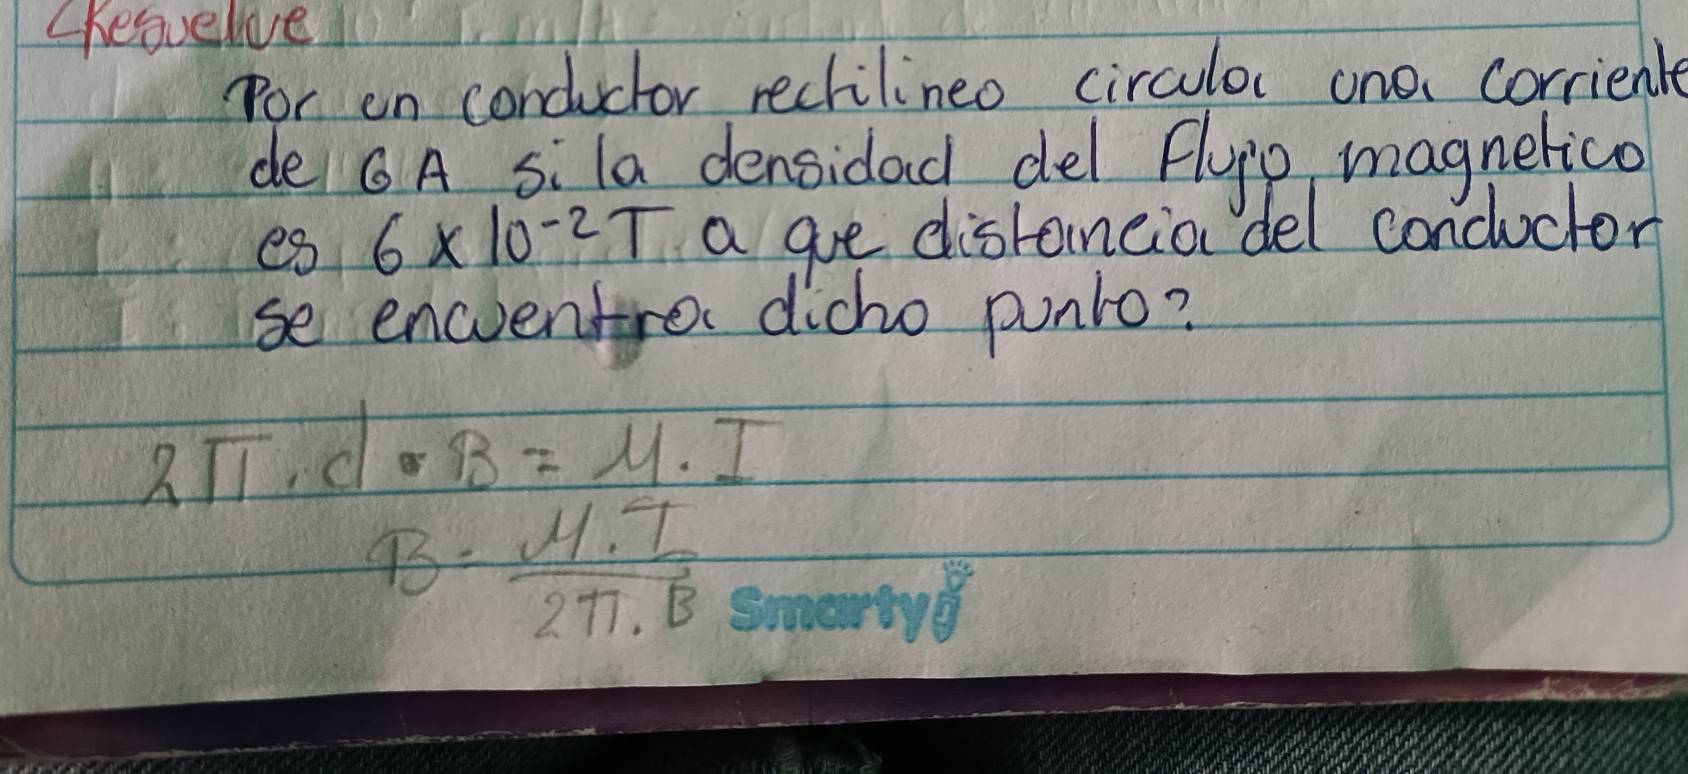 Resuelve
Por un conductor rectilineo circula una corriente
de 6 A si la densidad del Flujo magnetico
es 6 x 10⁻² T a que distancia del conductor
se encuentra dicho punto?
2π . d • B = μ . I
B = μ . I / 2π . B
Smarty